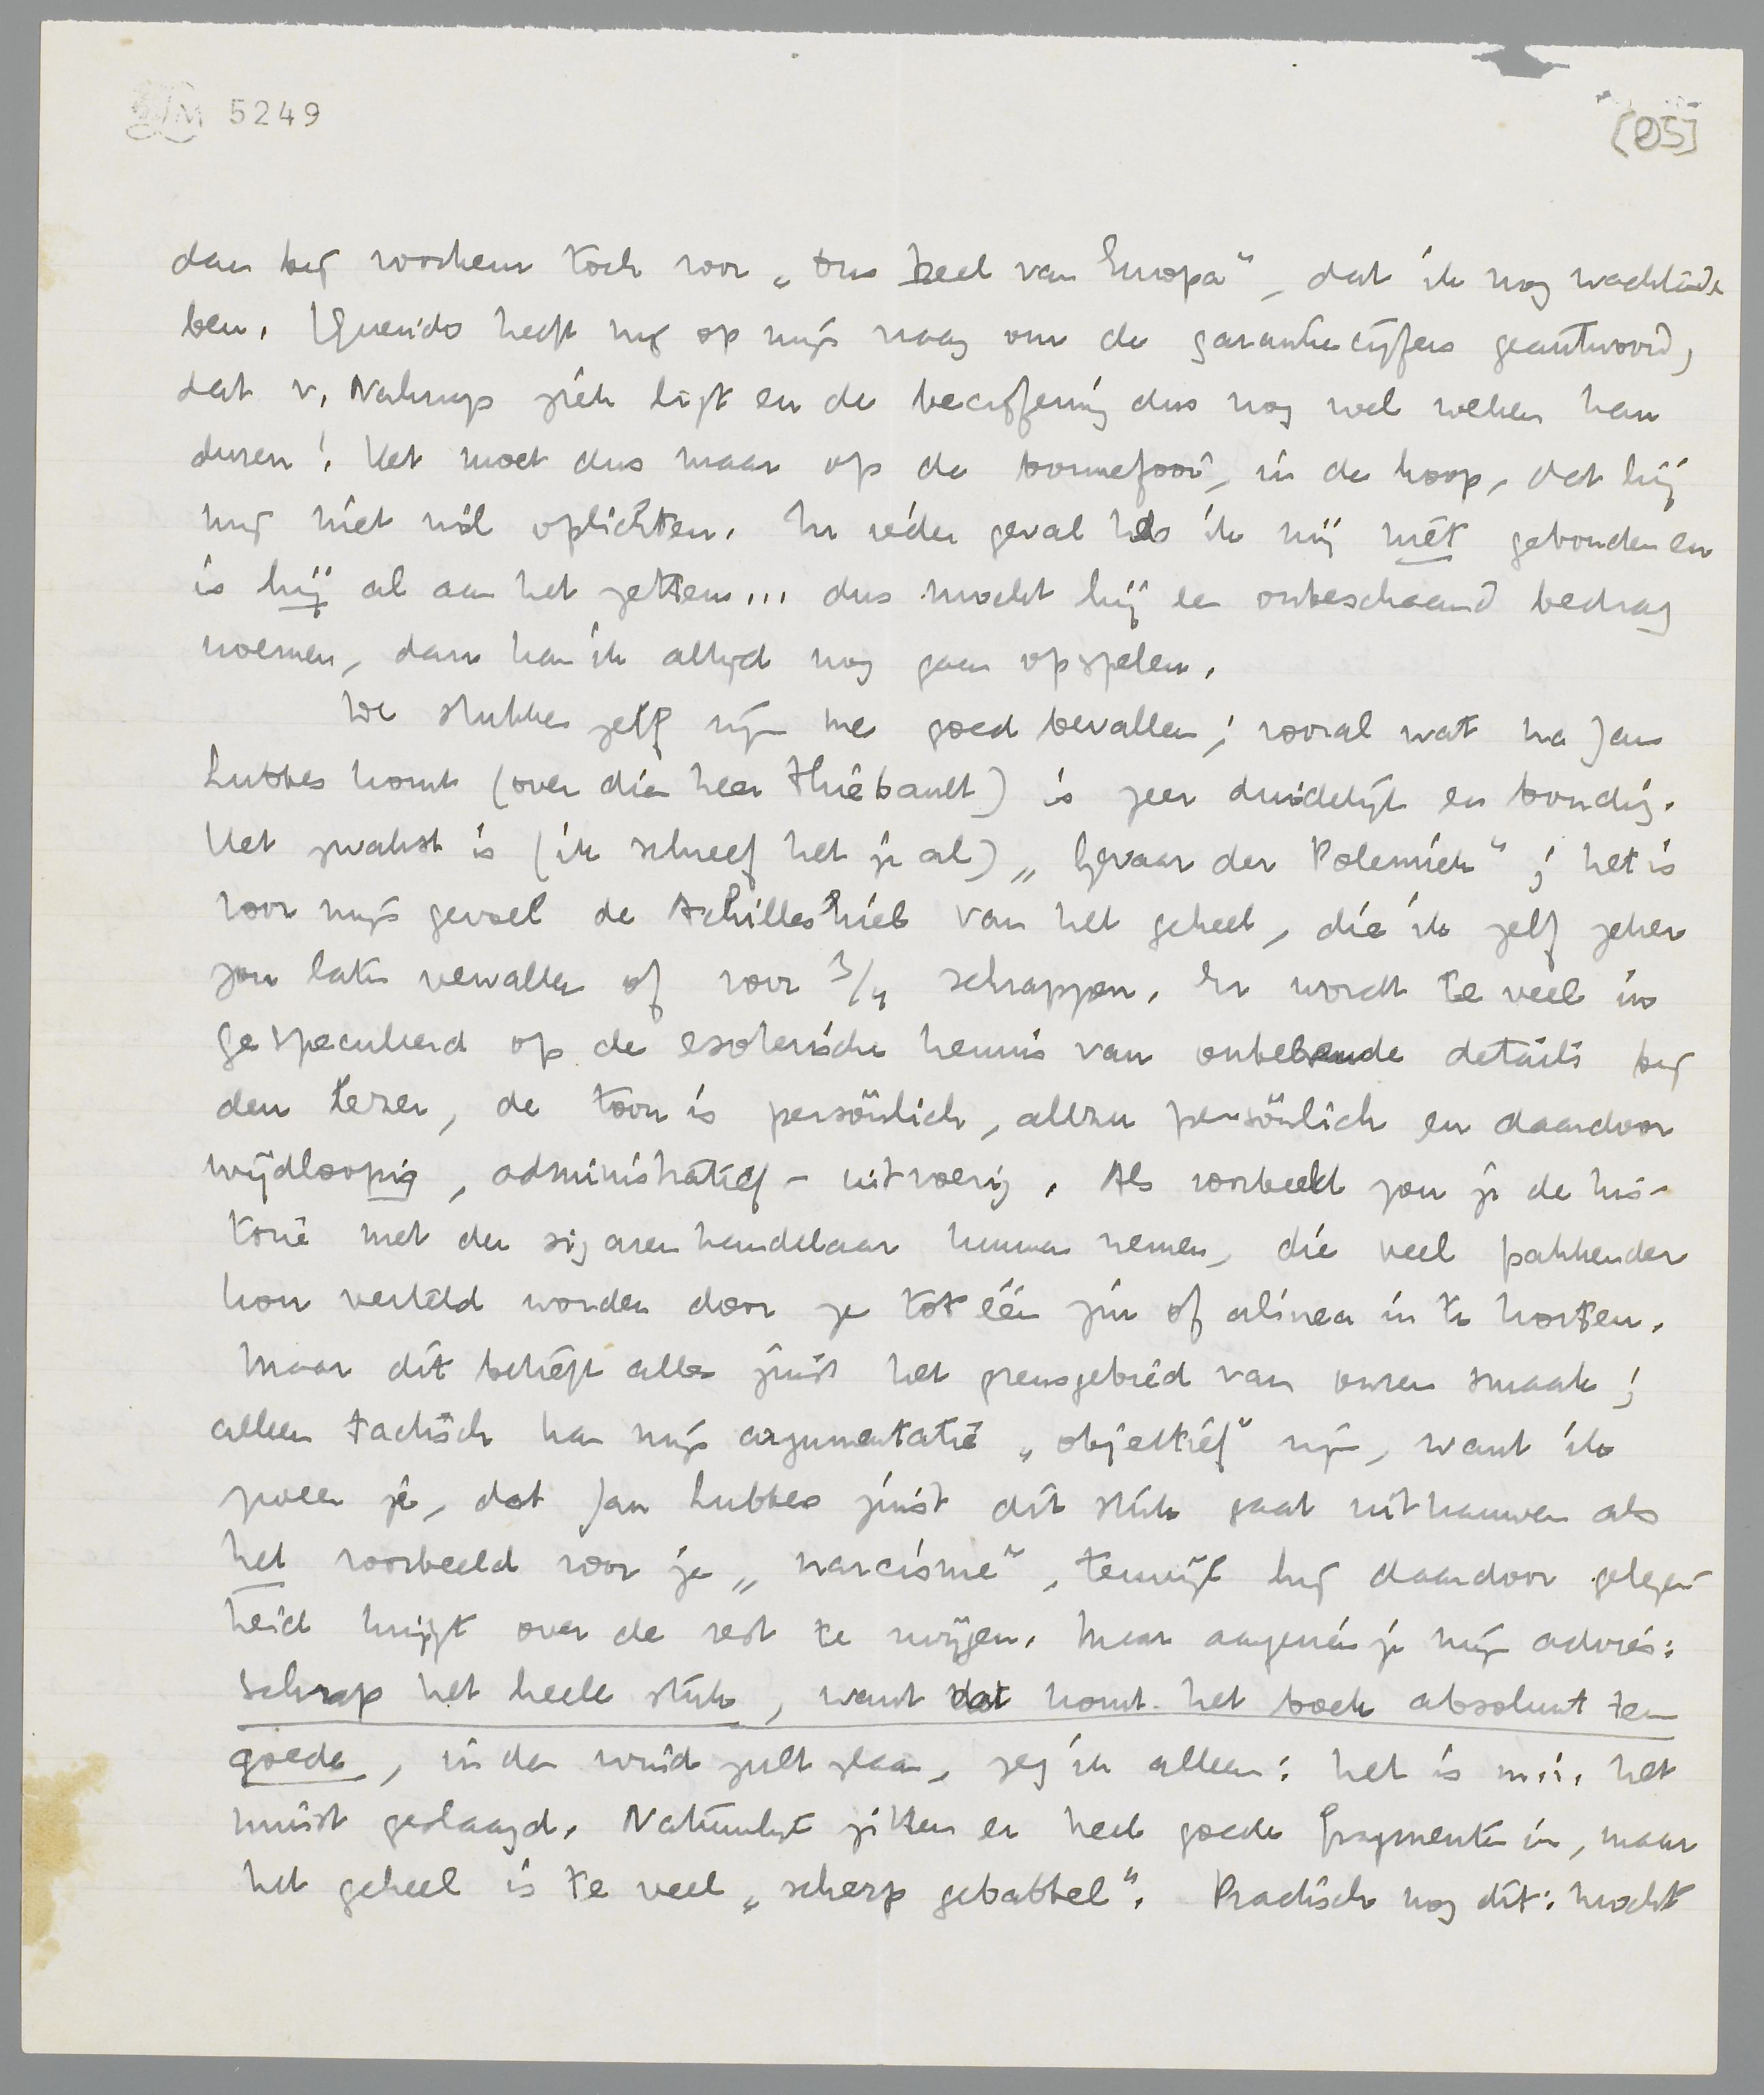 5249
(05]
dan bij voorkeur toch voor „Ons deel van Europa", dat ik nog wachtende
ben. Querido heeft mij op mijn vraag om de garantiecijfers geantwoord,
dat v. Nahuys ziek ligt en de becijfering dus nog wel weken kan
duren! Het moet dus maar op de bonnefooi, in de hoop, dat hij
mij niet wil oplichten. In ieder geval heb ik mij niet gebonden en
is hij al aan het zetten... dus mocht hij een onbeschaamd bedrag
noemen, dan kan ik altijd nog gaan opspelen.
De stukken zelf zijn me goed bevallen; vooral wat na Jan
Lubbes komt (over dien heer Thiébault) is zeer duidelijk en bondig.
Het zwakst is (ik schreef het je al) „Gevaar der Polemiek"; het is
voor mijn gevoel de Achilleshiel van het geheel, die ik zelf zeker
zou laten vervallen of voor 3/4 schrappen. Er wordt te veel in
gespeculeerd op de esoterische kennis van onbekende details bij
den lezer, de toon is persönlich, allzu persönlich en daardoor
wijdloopig, administratief-uitvoerig. Als voorbeeld zou je de his-
torie met den sigarenhandelaar kunnen nemen, die veel pakkender
kon verteld worden door ze tot één zin of alinea in te korten.
Maar dit betreft alles juist het grensgebied van onzen smaak;
alleen tactisch kan mijn argumentatie „objectief" zijn, want ik
zweer je, dat Jan Lubbes juist dit stuk gaat uitkauwen als
het voorbeeld voor je „narcisme", terwijl hij daardoor gelegen-
heid krijgt over de rest te zwijgen. Maar aangezien je mijn advies:
schrap het heele stuk, want dat komt het boek absoluut ten
goede, in den wind zult slaan, zeg ik alleen: het is m.i. het
minst geslaagd. Natuurlijk zitten er heel goede fragmenten in, maar
het geheel is te veel „scherp gebabbel". Practisch nog dit: mocht